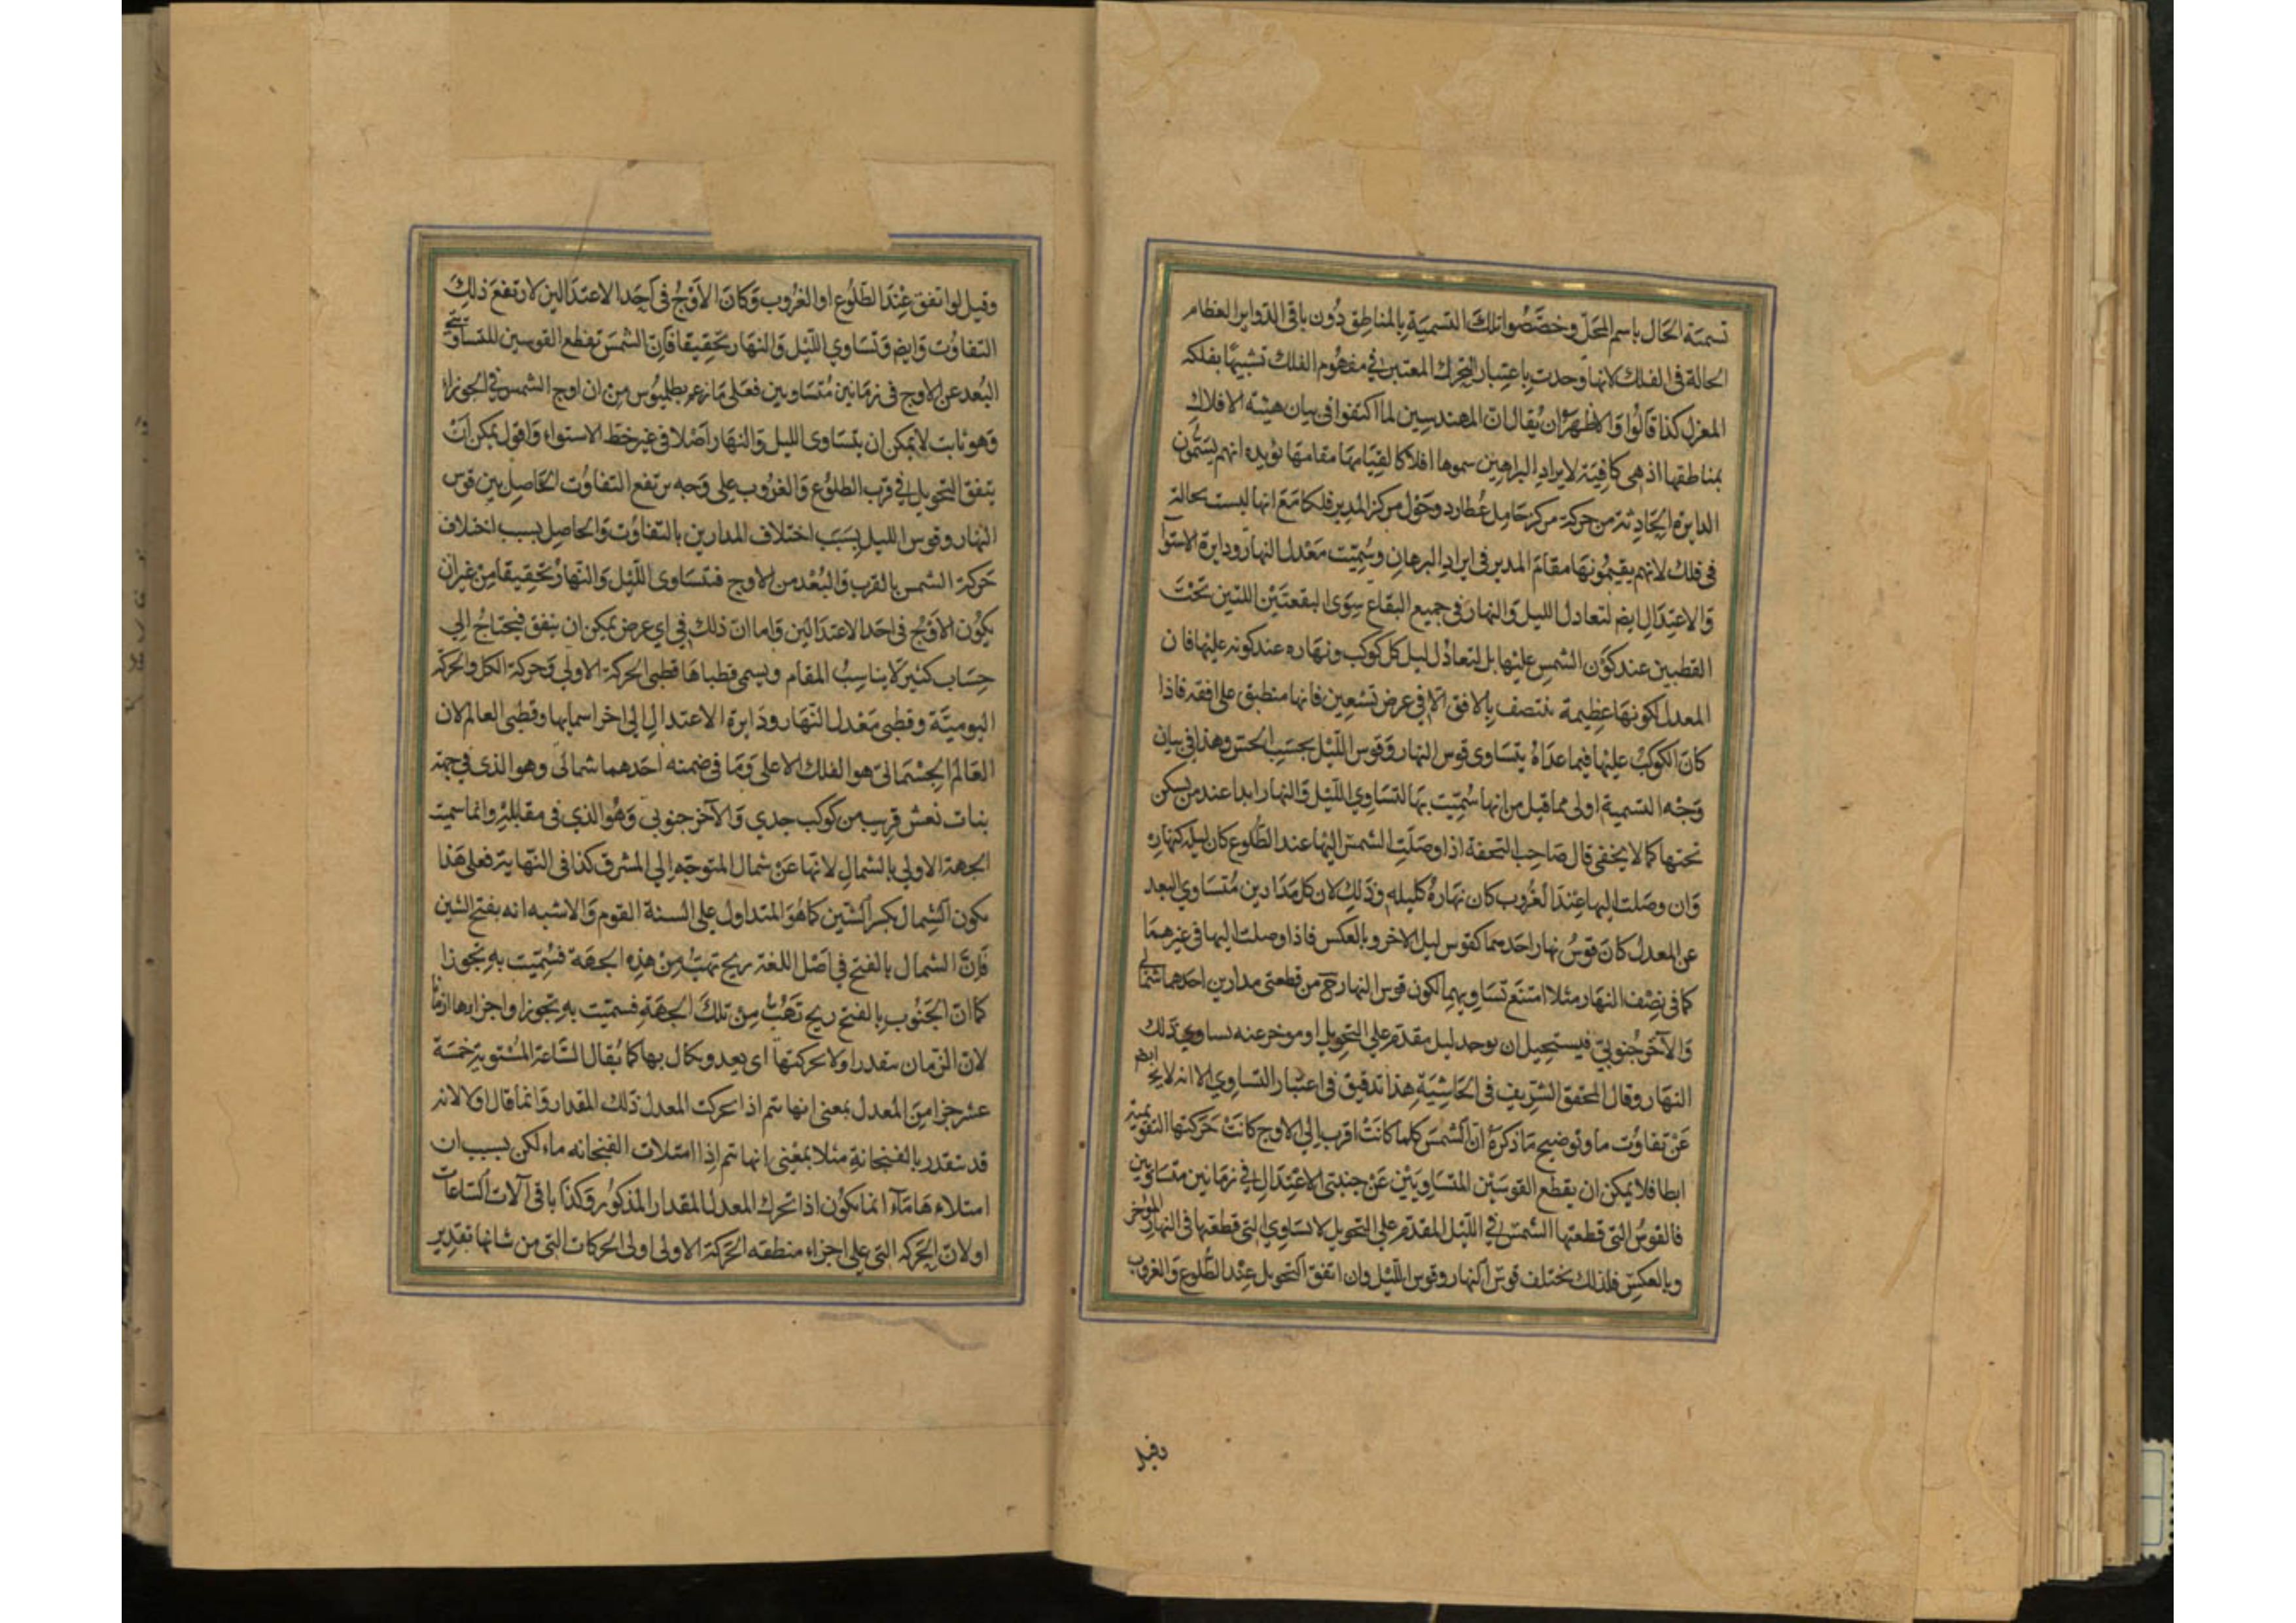 تسمية الحال باسم المحل وخصصوا تلك التسمية بالمناطق دون باقي الدواير العظام
الحالة فى الفلك لانها وجدت باعتبار التحرك المعتبر في مفهوم الفلك تشبيها بفلكه
المغزل كذا قالوا والاظهر ان يقال ان المهندسين لما اكتفوا فى بيان هيئة الافلاك
بمناطقها اذ هى كافية لايراد البراهين سموها افلاكا لقيامها مقامها يؤيده انهم يسمون
الدايرة الحادثة من حركة مركز حامل عطارد حول مركز المدير فلكا مع انها ليست بحالة
فى فلك لانهم يقيمونها مقام المدير فى ايراد البرهان وسميت معدل النهار ودايرة الاستوآ
والاعتدال ايضم لتعادل الليل والنهار فى جميع البقاع سوى البقعتين اللتين تحت
القطبين عند كون الشمس عليها بل لتعادل ليل كل كوكب ونهاره عند كونه عليها فان
المعدل لكونها عظيمة تنتصف بالافق الا فى عرض تسعين فانها منطبق على افقه فاذا
كان الكوكب عليها فيما عداه يتساوى قوس النهار وقوس الليل بحسب الحس وهذا فى بيان
وجه التسمية اولى مما قيل من انها سميت بها لتساوي الليل والنهار ابدا عند من يسكن
تحتها كما لا يخفى قال صاحب التحفة اذا وصلت الشمس اليها عند الطلوع كان ليله كنهاره
وان وصلت اليها عند الغروب كان نهاره كليله وذلك لان كل مدارين متساوي البعد
عن المعدل كان قوس نهار احدهما كقوس ليل الاخر وبالعكس فاذا وصلت اليها فى غيرهما
كما فى نصف النهار مثلا امتنع تساويهما لكون قوس النهار ح من قطعتى مدارين احدهما شمالى
والآخر جنوبي فيستحيل ان يوجد ليل مقدم على التحويل او موخر عنه يساوي ذلك
النهار وقال المحقق الشريف فى الحاشية هذا تدقيق فى اعتبار التساوي الا انه لا يخ ايضم
عن تفاوت ما وتوضيح ما ذكره ان الشمس كلما كانت اقرب الى الاوج كانت حركتها التقويمية
ابطا فلا يمكن ان يقطع القوسين المتساويتين عن جنبتى الاعتدال في زمانين متساويين
فالقوس التى قطعتها الشمس في الليل المقدم على التحويل لا تساوي التى قطعتها فى النهار المؤخر
وبالعكس فلذلك يختلف قوس النهار وقوس الليل وان اتفق التحويل عند الطلوع والغروب
وقيل
وقيل لو اتفق عند الطلوع او الغروب وكان الاوج فى احد الاعتدالين لارتفع ذلك
التفاوت وايضم وتساوي الليل والنهار تحقيقا فان الشمس تقطع القوسين المتساويتي
البعد عن الاوج فى زمانين متساويين فعلى ما زعم بطلميوس من ان اوج الشمس في الجوزاء
وهو ثابت لا يمكن ان يتساوى الليل والنهار اصلا فى غير خط الاستواء واقول يمكن ان
يتفق التحويل في قرب الطلوع والغروب على وجه يرتفع التفاوت الحاصل بين قوس
النهار وقوس الليل بسبب اختلاف المدارين بالتفاوت والحاصل بسبب اختلاف
حركة الشمس بالقرب والبعد من الاوج فتساوى الليل والنهار تحقيقا من غير ان
يكون الاوج فى احد الاعتدالين واما ان ذلك في اي عرض يمكن ان يتفق فيحتاج الى
حساب كثير لا يناسب المقام ويسمى قطباها قطبى الحركة الاولي وحركة الكل والحركة
اليومية وقطبى معدل النهار ودايرة الاعتدال الى اخر اسمايها وقطبى العالم لان
العالم الجسمانى هو الفلك الاعلى وما فى ضمنه احدهما شمالى وهو الذى في جهة
بنات نعش قريب من كوكب جدي والآخر جنوبي وهو الذي فى مقابلته وانما سميت
الجهة الاولي بالشمال لانها عن شمال المتوجه الي المشرق كذا فى النهاية فعلى هذا
يكون الشمال بكسر الشين كما هو المتداول على السنة القوم والاشبه انه بفتح الشين
فان الشمال بالفتح في اصل اللغة ريح تهب من هذه الجهة فسميت به تجوزا
كما ان الجنوب بالفتح ريح تهب من تلك الجهة فسميت به تجوزا واجزاءها ازمانا
لان الزمان يتقدر اولا بحركتها اى يعد ويكال بها كما يقال الساعة المستوية خمسة
عشر جزا من المعدل بمعنى انها يتم اذا تحركت المعدل ذلك المقدار وانما قال اولا لانه
قد يتقدر بالفنجانة مثلا بمعنى انها يتم اذا امتلات الفنجانه ماء لكن بسبب ان
امتلاءها مآء انما يكون اذا تحرك المعدل المقدار المذكور وكذا باقى آلات الساعات
او لان الحركه التى على اجزاء منطقه الحركة الاولى اولى الحركات التى من شانها تقدير